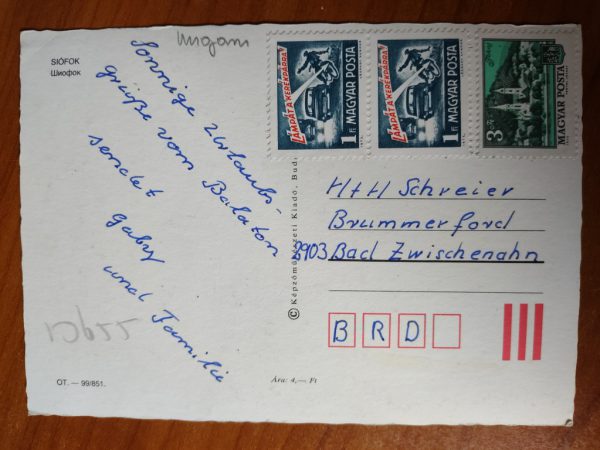 SIÓFOK
Шиофок
Ungarn
Sonnige Urlaubs-
grüße vom Balaton
sendet
Gaby
und Familie
OT. — 99/851.
Ára: 4,— Ft
© Képzőművészeti Kiadó, Bud
LÁMPÁT A KERÉKPÁRRA!
1 Ft MAGYAR POSTA
LÁMPÁT A KERÉKPÁRRA!
1 Ft MAGYAR POSTA
3 Ft
MAGYAR POSTA
H+H Schreier
Brummerford
2903 Bad Zwischenahn
BRD